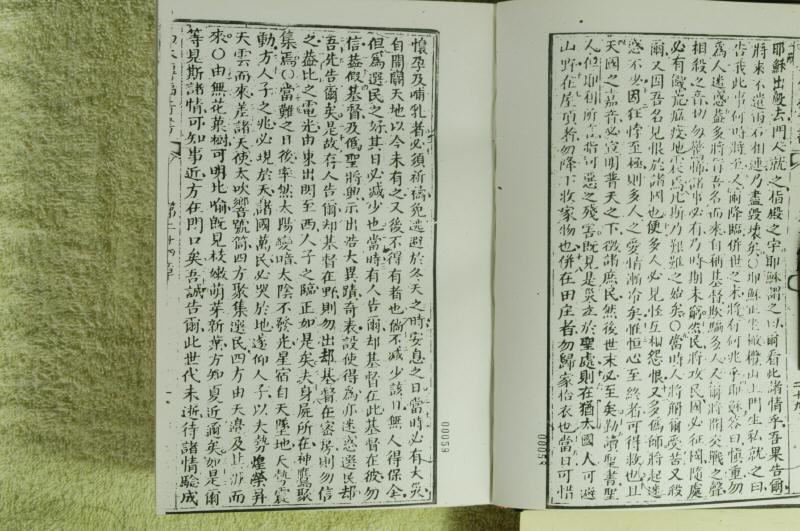 耶穌出殿去門人就之指殿之宇耶穌謂之曰爾看此諸情乎吾果告爾
將來不遺兩石相連乃盡毀壞矣〇耶穌正坐橄欖山上門生私就之曰
告我此事何時將至又爾降臨併世之末將有何兆乎耶穌答曰慎重勿
人迷惑蓋多將冒吾名而來自稱基督欺騙多人又爾將聞交戰之聲
相殺之音切勿驚怖諸事必有乃時期未窮然民將攻民國必征國隨處
必有饑荒瘟疫地震焉斯乃艱難之始矣〇當時人將解爾受苦又殺
爾又因吾名見恨於諸國也便多人必見怪互相怨恨又多僞師將起迷
惑不必因狂悖至極則多人之愛情漸冷矣惟恒心至終者可得救也且
天國之嘉音必宣明普天之下徵諸庶民然後世末必至矣勤讀聖書聖
人但耶利所言指可惡之殘害既見是災立於聖處則在猶太國人可避
山野在屋頂者勿降下收家物也併在田庄者勿歸家拾衣也當日可惜
懷孕及哺乳者必須祈禱免逃避於冬天之時安息之日當時必有大災
自開闢天地以今未有之又後不得有者也倘不減少該日無人得保全
但爲選民之好其日必減少也當時有人告爾却基督在此基督在彼勿
信蓋假基督及僞聖將興示出浩大異蹟奇表設使得爲亦迷惑選民却
吾先告爾矣是故存人告爾却基督在野則勿出却基督在密房則勿信
之蓋比之電光由東出閃至西人子之臨正如是矣夫身屍所在神鷹聚
集焉〇當難之日後率然太陽變暗太陰不發光星宿自天墜地天勢震
動方人子之兆必現於天諸國萬民必哭於地遂仰人子以大勢煌榮昇
天雲而來差諸天使太吹響號筒四方聚集選民四方由天邊及其涯而
來〇由無花菓樹可明比喻既見枝嫩萌芽新葉方知夏近邇矣如是爾
等見斯諸情可知事近方在門口矣吾誠告爾此世代未逝待諸情騐成
第二十四章
00059